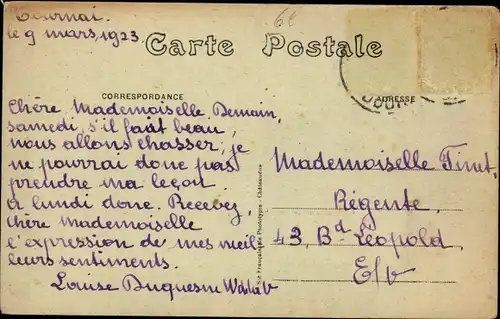 Tournai.
le 9 mars, 1923.
6f
Carte Postale
CORRESPONDANCE
ADRESSE
Chère Mademoiselle, Demain,
samedi, s'il fait beau,
nous allons chasser; je
ne pourrai donc pas
prendre ma leçon.
à lundi donc. Recevez,
Chère Mademoiselle
l'expression de mes meil
leurs sentiments.
Louise Duquesne
Mademoiselle Tinet.
Régente.
43, Bd Léopold,
E/V